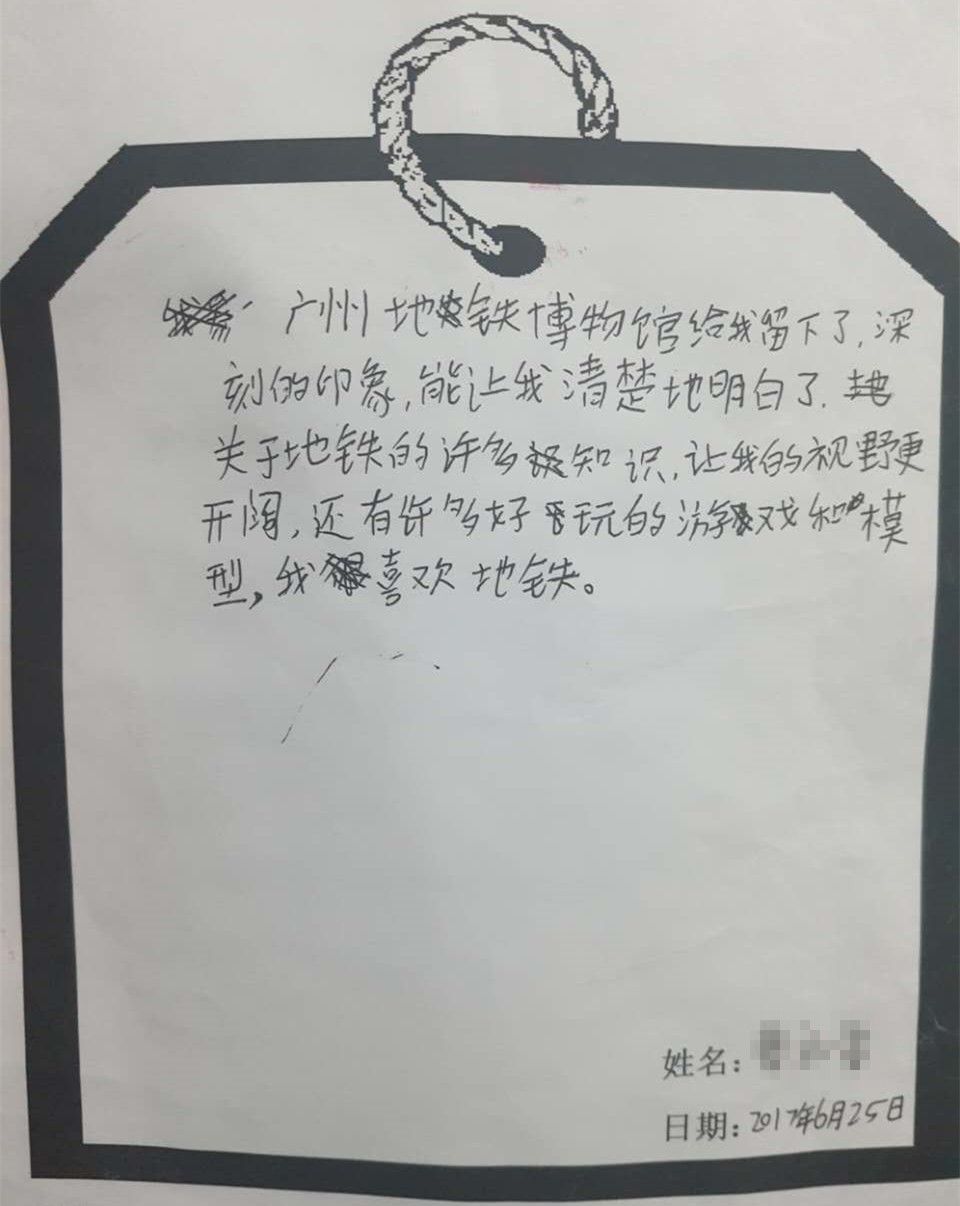 广州地铁博物馆给我留下了,深
刻的印象,能让我清楚地明白了.
关于地铁的许多知识,让我的视野更
开阔,还有许多好玩的游戏和模
型,我喜欢地铁。
姓名:
日期:2017年6月25日